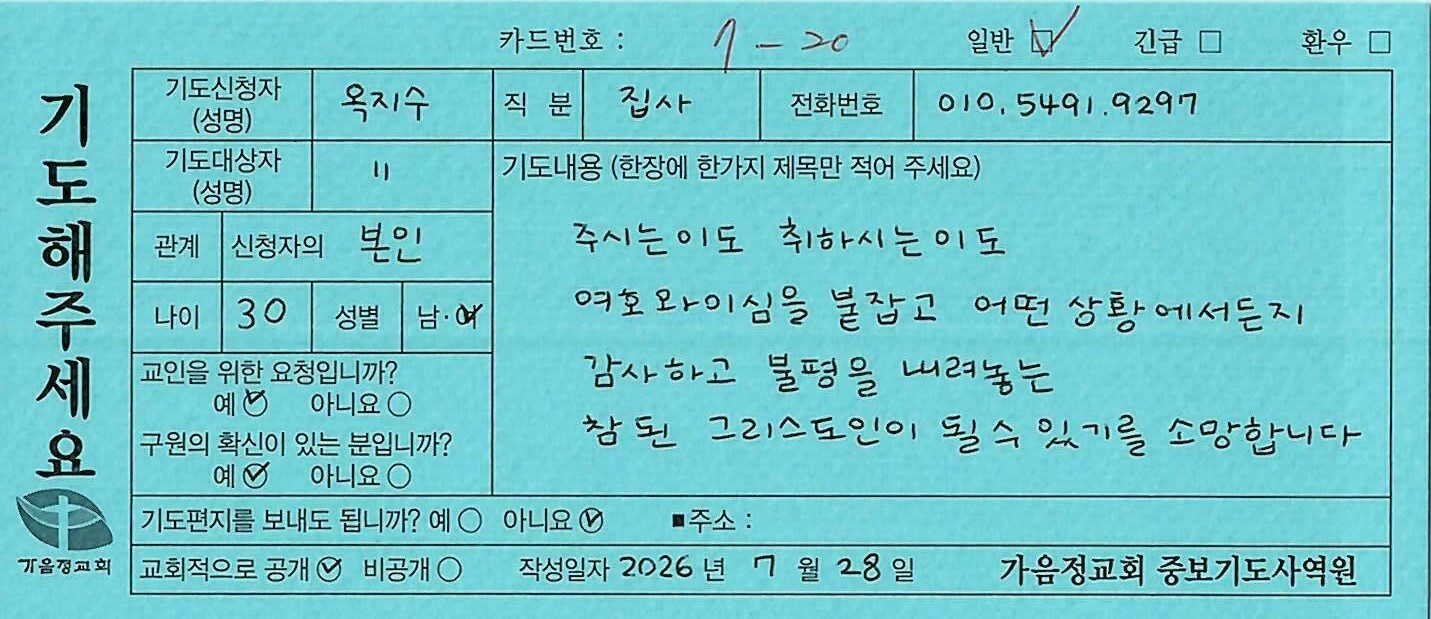 카드번호 : 7 - 20 일반 ☑ 긴급 □ 환우 □
기도해주세요
기도신청자 (성명) 옥지수 직 분 집사 전화번호 010.5491.9297
기도대상자 (성명) 〃
관계 신청자의 본인
나이 30 성별 남 · 여
교인을 위한 요청입니까?
예 ☑ 아니요 ○
구원의 확신이 있는 분입니까?
예 ☑ 아니요 ○
기도내용 (한장에 한가지 제목만 적어 주세요)
주시는이도 취하시는이도
여호와이심을 붙잡고 어떤 상황에서든지
감사하고 불평을 내려놓는
참 된 그리스도인이 될 수 있기를 소망합니다
기도편지를 보내도 됩니까? 예 ○ 아니요 ☑ ■주소 :
교회적으로 공개 ☑ 비공개 ○ 작성일자 2026 년 7 월 28 일 가음정교회 중보기도사역원
가음정교회